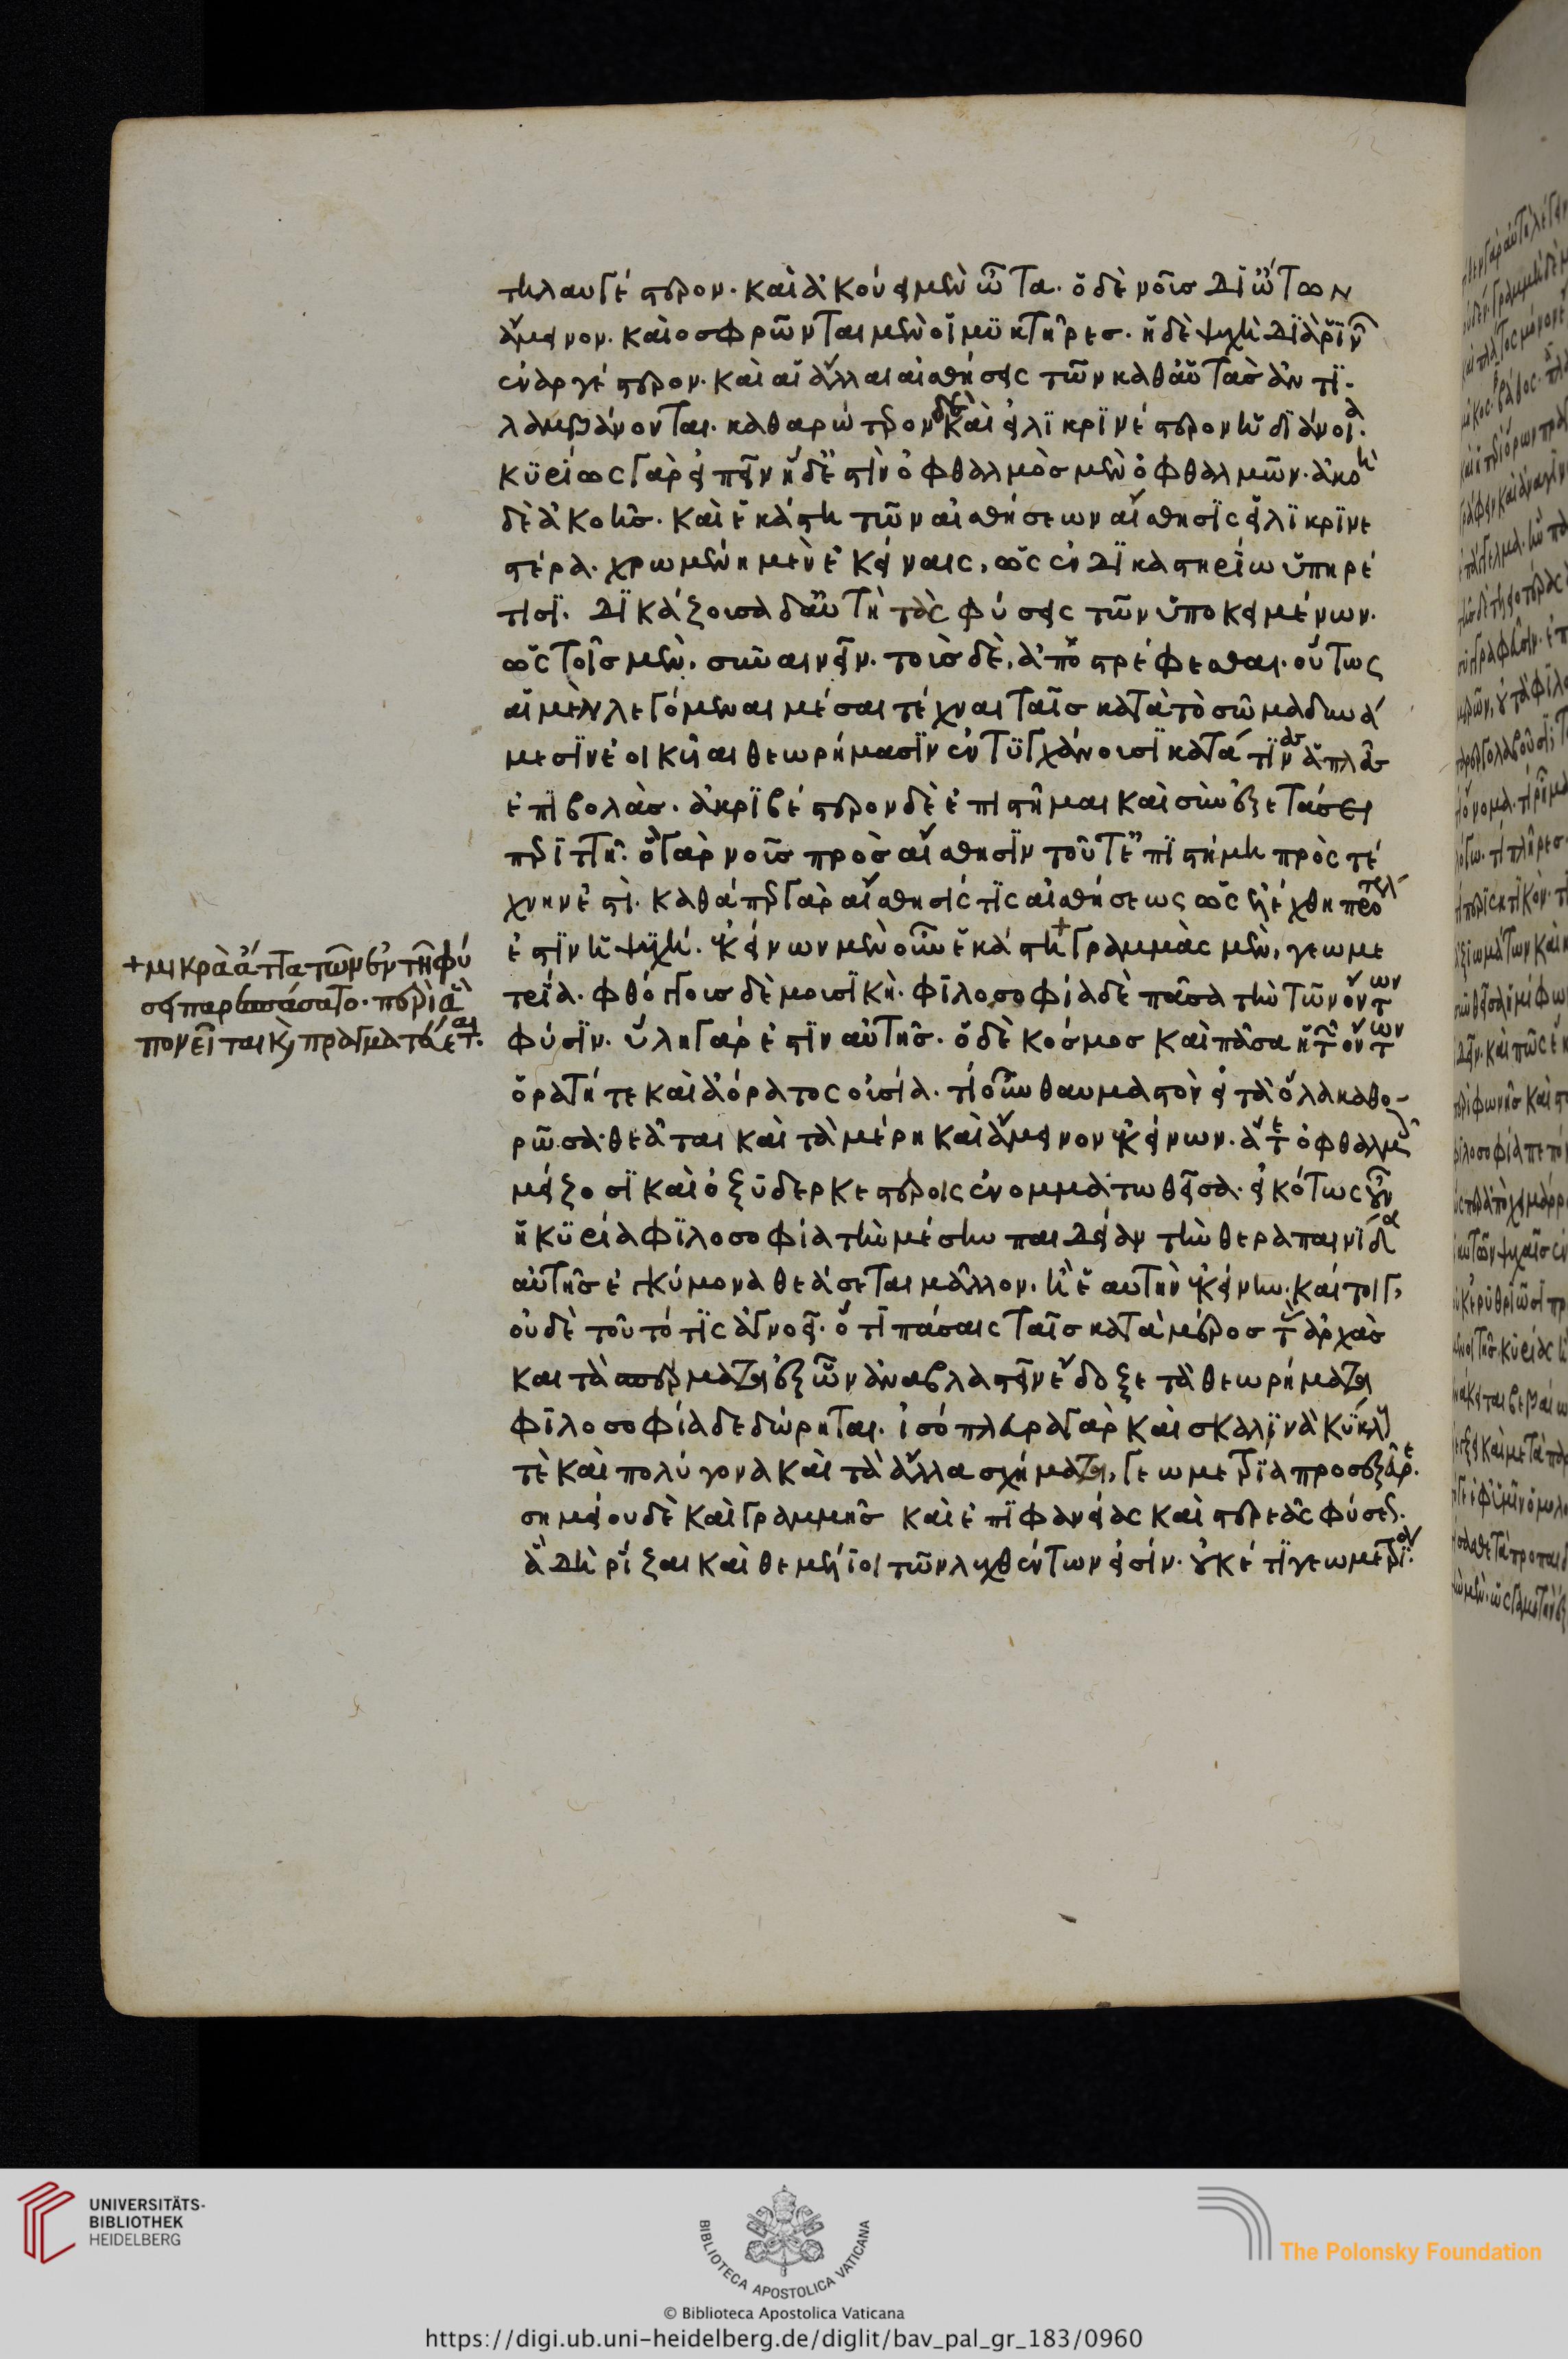 τηλαυγέστερον. καὶ ἀκούει μὲν ὦτα. ὁ δὲ νοῦς δι' ὤτων
ἄμεινον. καὶ οσφρῶνται μὲν οἱ μυκτῆρες. ἡ δὲ ψυχὴ διὰ ῥινῶν
ἐναργέστερον. καὶ αἱ ἄλλαι αἰσθήσεις τῶν καθ' αὑτὰς ἀντι-
λαμβάνονται. καθαρώτερον δὲ καὶ εἰλικρινέστερον ἡ διάνοια.
κυρίως γὰρ εἰπεῖν ἥδ' ἐστὶν ὀφθαλμὸς μὲν ὀφθαλμῶν. ἀκοὴ
δὲ ἀκοῆς. καὶ ἑκάστη τῶν αἰσθήσεων αἴσθησις εἰλικρινε
στέρα. χρωμένη μὲν ἐκείναις, ὡς ἐν δικαστηρίω ὑπηρέ
τισι. δικάζουσα δ' αὐτὴ τὰς φύσεις τῶν ὑποκειμένων.
ὡς τοῖς μὲν, συναινεῖν. τοὺς δὲ, ἀποστρέφεσθαι. οὕτως
αἱ μὲν λεγόμεναι μέσαι τέχναι ταῖς κατὰ τὸ σῶμα δυνά
μεσιν ἐοικυῖαι θεωρήμασιν ἐντυγχάνουσι κατά τινας ἁπλᾶς
ἐπιβολάς. ἀκριβέστερον δὲ ἐπιστῆμαι καὶ σὺν ἐξετάσει
περιττῆ. ὃ γὰρ νοῦς πρὸς αἴσθησιν τοῦτ' ἐπιστήμη πρὸς τέ
χνην ἐστί. καθάπερ γὰρ αἴσθησίς τις αἰσθήσεως ὡς ἐλέχθη πρότερ
ἐστὶν ἡ ψυχή. ἐκείνων μὲν οὖν ἑκάστη + γραμμὰς μὲν, γεωμε
τρία. φθόγγους δὲ μουσική. φιλοσοφία δὲ πᾶσα τὴν τῶν ὄντων
φύσιν. ὕλη γάρ ἐστιν αὐτῆς. ὅδε κόσμος καὶ πᾶσα ἡ τῶν ὄντων
ὁρατή τε καὶ ἀόρατος οὐσία. τί οὖν θαυμαστὸν εἰ τὰ ὅλα καθο-
ρῶσα θεᾶται καὶ τὰ μέρη καὶ ἄμεινον ἐκείνων. ἅτε ὀφθαλμοῖς
μείζοσι καὶ ὀξυδερκεστέροις ἐνομματωθεῖσα. εἰκότως οὖν
ἡ κυρία φιλοσοφία τὴν μέσην παιδείαν τὴν θεραπαινίδα
αὐτῆς ἐγκύμονα θεάσεται μᾶλλον. ἢ ἑαυτὴν ἐκείνην. καίτοι γ'
οὐδὲ τοῦτό τις ἀγνοεῖ. ὅτι πάσαις ταῖς κατὰ μέρος τὰς ἀρχὰς
και τὰ σπέρματα ἐξ ὧν ἀναβλαστεῖν ἔδοξε τὰ θεωρήματα
φιλοσοφία δεδώρηται. ἰσόπλευρα γὰρ καὶ σκαληνὰ κύκλους
τὲ καὶ πολύγονα καὶ τὰ ἄλλα σχήματα, γεωμετρία προσεξεῦρε.
σημείου δὲ καὶ γραμμῆς καὶ ἐπιφανείας καὶ στερεᾶς φύσεις.
ἃ δὴ ῥίζαι καὶ θεμέλιοι τῶν λεχθέντων εἰσίν. οὐκέτι γεωμετρία.
+ μικρὰ ἄττα τῶν ἐν τῆ φύ
σει παρεσπάσατο. περὶ ἃ
πονεῖται καὶ πραγματεύεται.
UNIVERSITÄTS-
BIBLIOTHEK
HEIDELBERG
BIBLIOTECA APOSTOLICA VATICANA
The Polonsky Foundation
© Biblioteca Apostolica Vaticana
https://digi.ub.uni-heidelberg.de/diglit/bav_pal_gr_183/0960